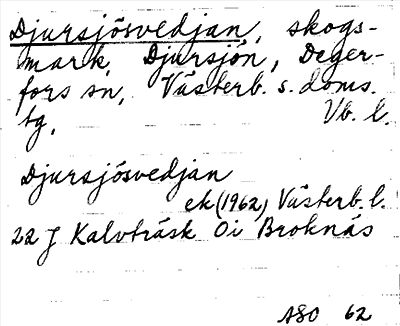 Djursjösvedjan, skogs-
mark, Djursjön, Deger-
fors sn, Västerb. s. doms.
tg, Vb. l.
Djursjösvedjan
ek (1962) Västerb. l.
22 J Kalvträsk Oi Broknäs
ASO 62